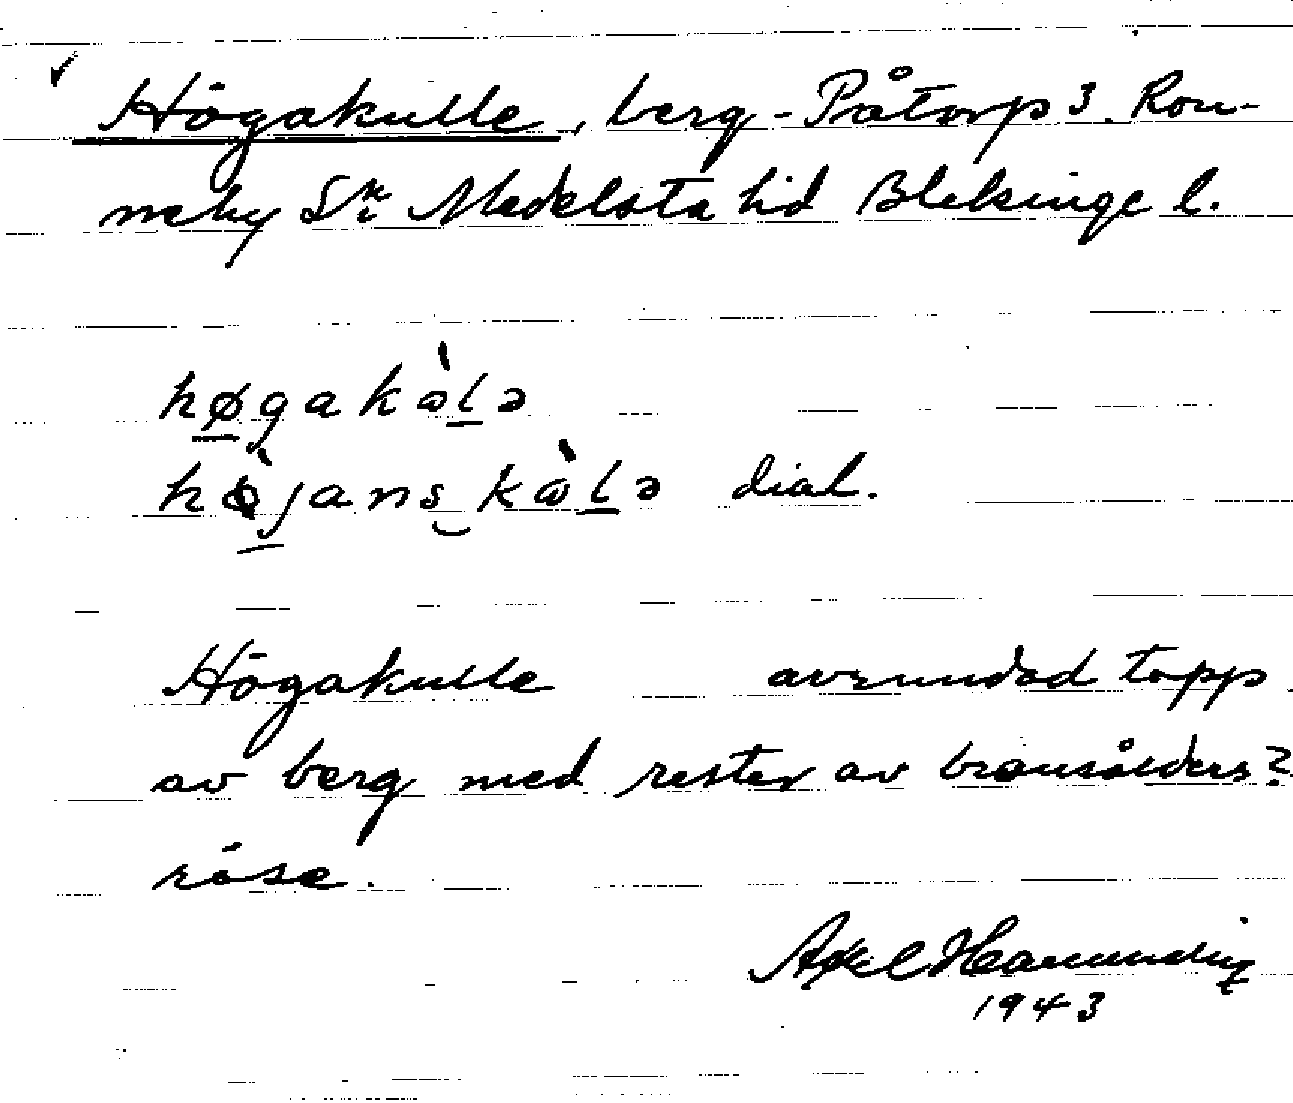 Högakulle, berg - Påtorp 3. Ron-
neby Sn Medelsta hd Blekinge l.
høgakòlə
hǿjans kòlə dial.
Högakulle avrundad topp
av berg med rester av bronsålders?
röse.
Axel
1943